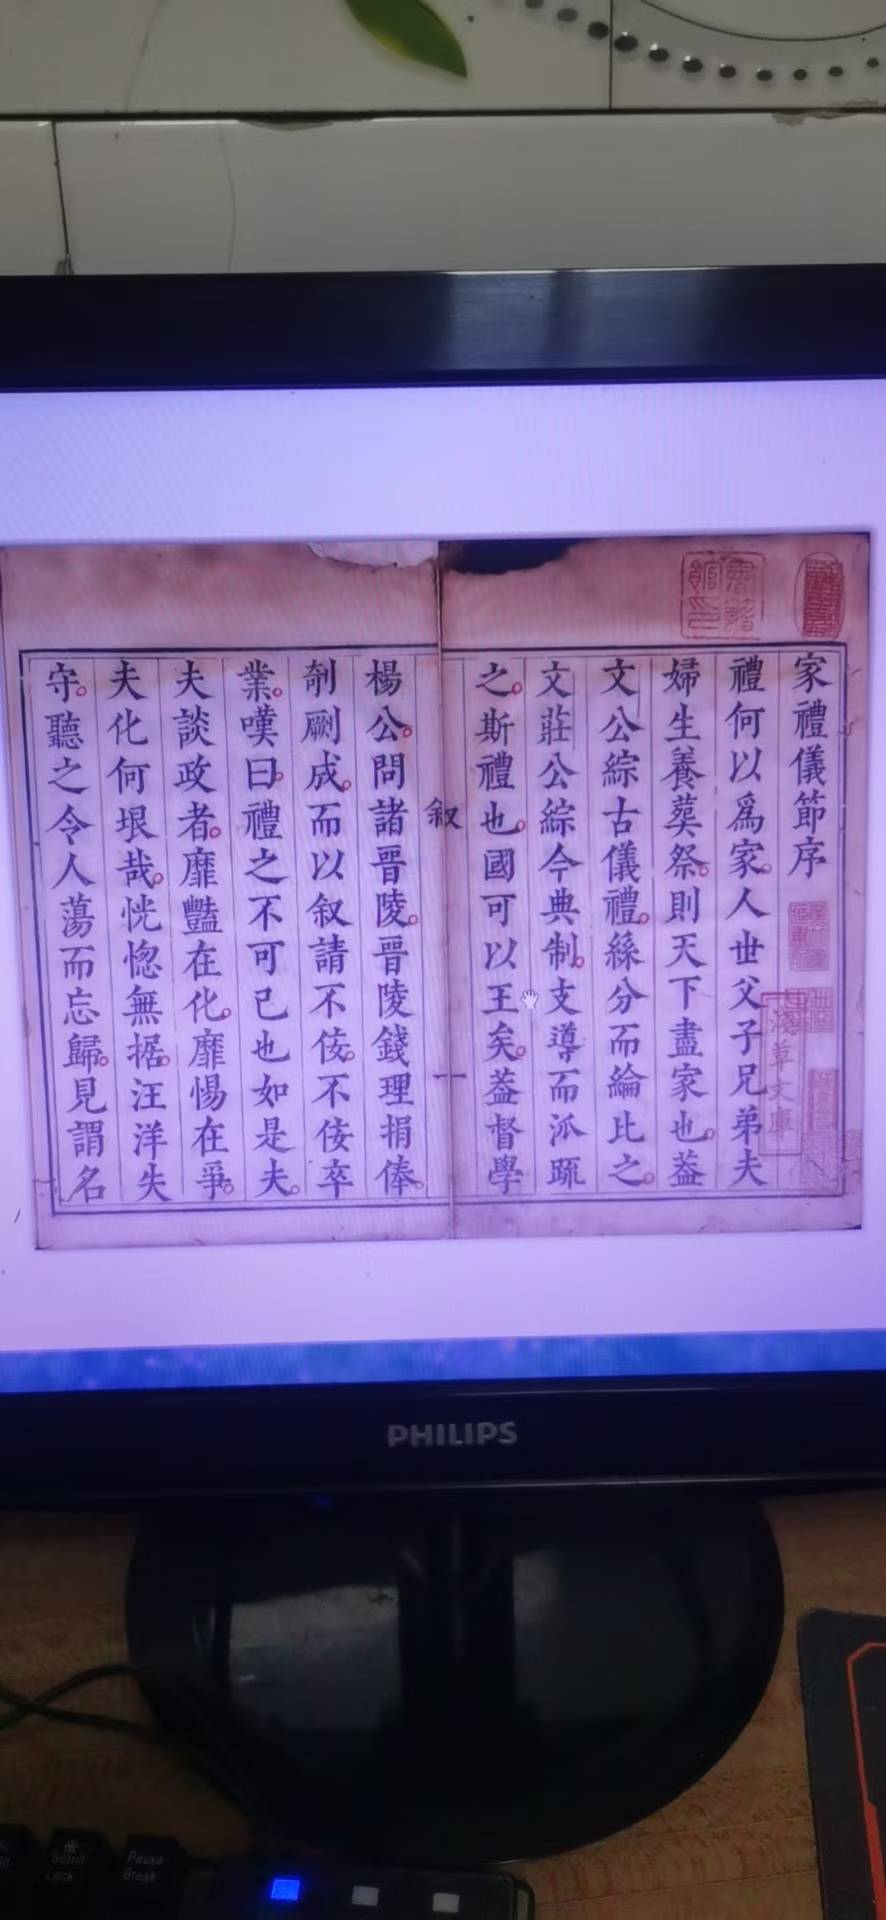 家禮儀節序
禮何以爲家人世父子兄弟夫
婦生養葬祭則天下盡家也葢
文公綜古儀禮絲分而綸比之
文莊公綜今典制支導而泒疏
之斯禮也國可以王矣葢督學
叙
一
楊公問諸晋陵晋陵錢理捐俸
剞劂成而以叙請不佞不佞卒
業嘆曰禮之不可已也如是夫
夫談政者靡豔在化靡惕在爭
夫化何垠哉恍惚無据汪洋失
守聽之令人蕩而忘歸見謂名
淺草文庫
PHILIPS
Scroll
Lock
Pause
Break